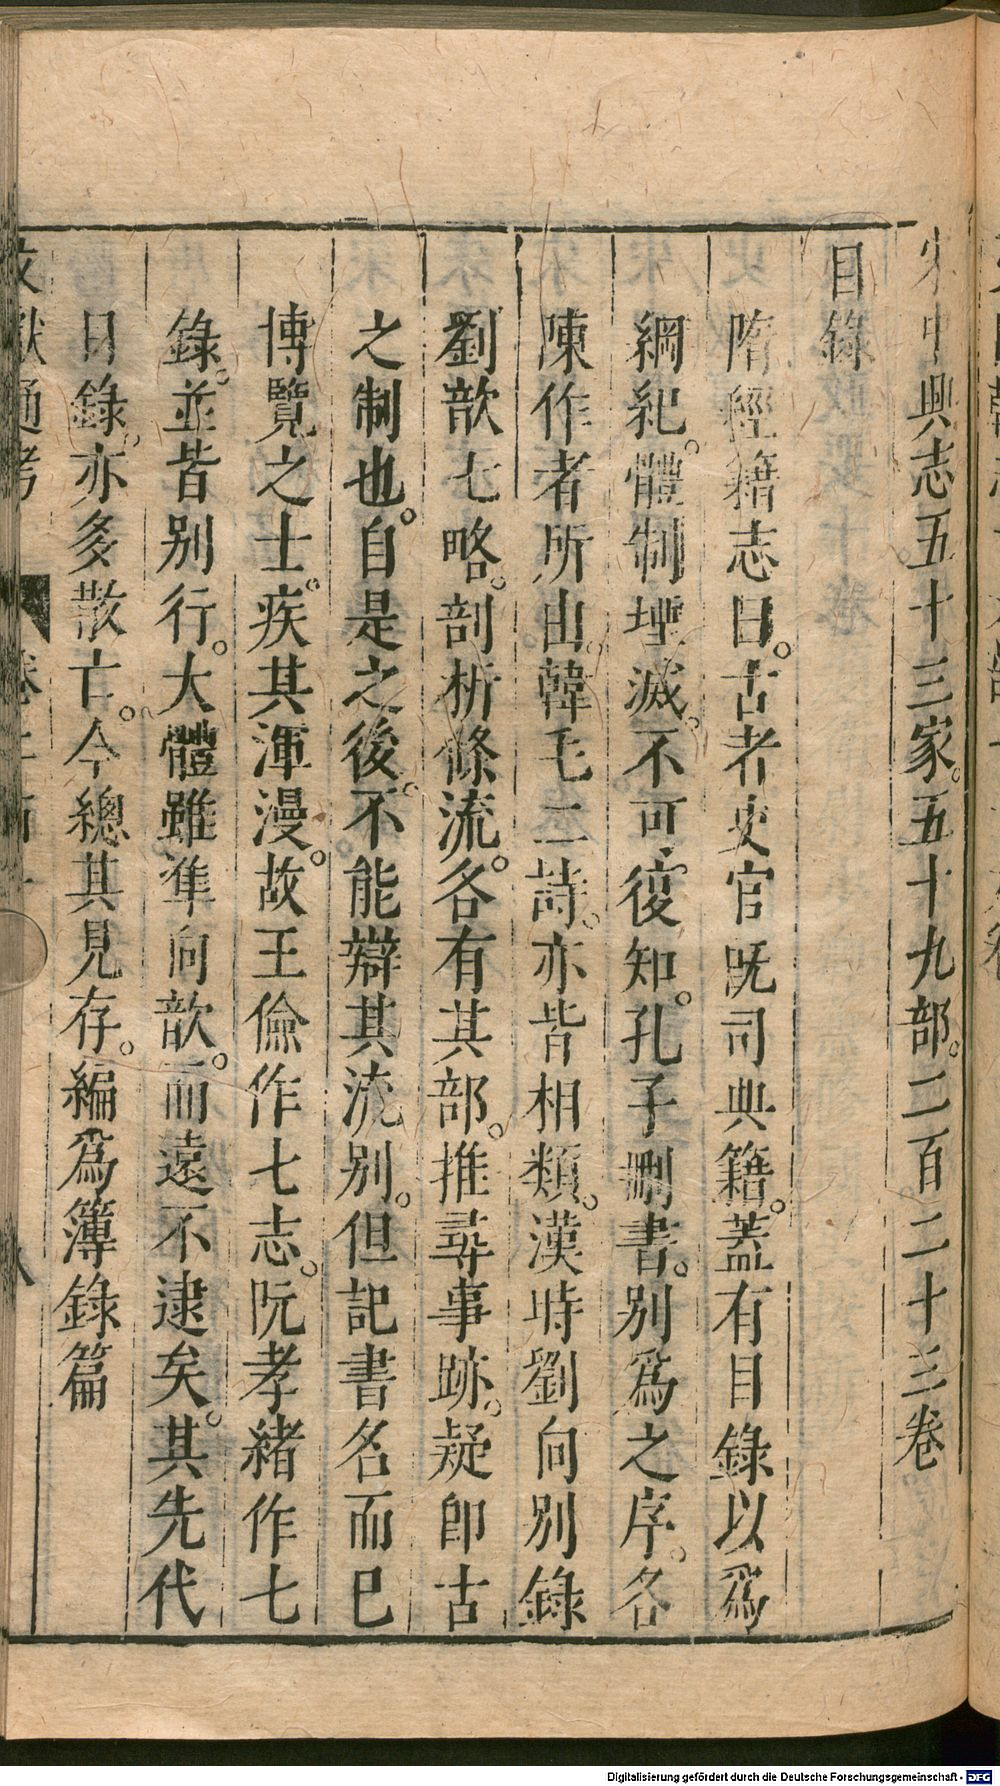 宋中興志五十三家。五十九部。二百二十三卷
目錄
隋經籍志曰。古者史官既司典籍。蓋有目錄以爲
綱紀。體制堙滅。不可復知。孔子刪書。別爲之序。各
陳作者所由。韓毛二詩。亦皆相類。漢時劉向別錄
劉歆七略。剖析條流。各有其部。推尋事跡。疑卽古
之制也。自是之後。不能辯其流別。但記書名而已
博覽之士。疾其渾漫。故王儉作七志。阮孝緒作七
錄。並皆別行。大體雖準向歆。而遠不逮矣。其先代
目錄。亦多散亡。今總其見存。編爲簿錄篇
文獻通考
Digitalisierung gefördert durch die Deutsche Forschungsgemeinschaft - DFG